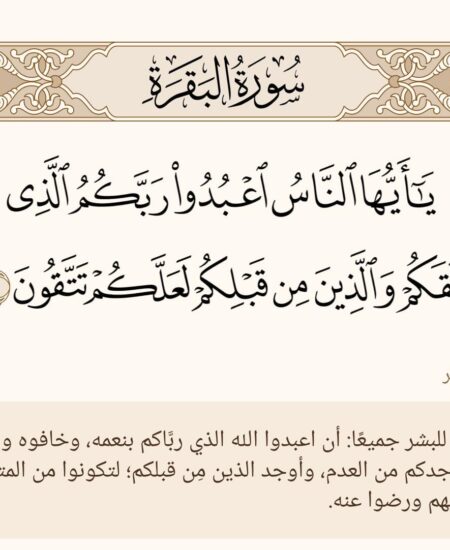 سُورَةُ البَقَرَةِ
يَٰٓأَيُّهَا ٱلنَّاسُ ٱعْبُدُواْ رَبَّكُمُ ٱلَّذِى
وَٱلَّذِينَ مِن قَبْلِكُمْ لَعَلَّكُمْ تَتَّقُونَ
للبشر جميعًا: أن اعبدوا الله الذي ربَّاكم بنعمه، وخافوه
من العدم، وأوجد الذين مِن قبلكم؛ لتكونوا من
ورضوا عنه.